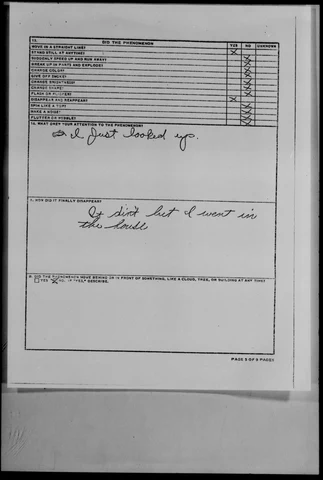 15. DID THE PHENOMENON YES NO UNKNOWN
MOVE IN A STRAIGHT LINE?
STAND STILL AT ANYTIME? X
SUDDENLY SPEED UP AND RUN AWAY? X
BREAK UP IN PARTS AND EXPLODE? X
CHANGE COLOR? X
GIVE OFF SMOKE? X
CHANGE BRIGHTNESS? X
CHANGE SHAPE? X
FLASH OR FLICKER? X
DISAPPEAR AND REAPPEAR? X
SPIN LIKE A TOP? X
MAKE A NOISE? X
FLUTTER OR WOBBLE? X
16. WHAT DREW YOUR ATTENTION TO THE PHENOMENON?
I Just looked up.
HOW DID IT FINALLY DISAPPEAR?
It din't but I went in
the house
DID THE PHENOMENON MOVE BEHIND OR IN FRONT OF SOMETHING, LIKE A CLOUD, TREE, OR BUILDING AT ANY TIME?
YES X NO. IF "YES," DESCRIBE.
PAGE 5 OF 9 PAGES